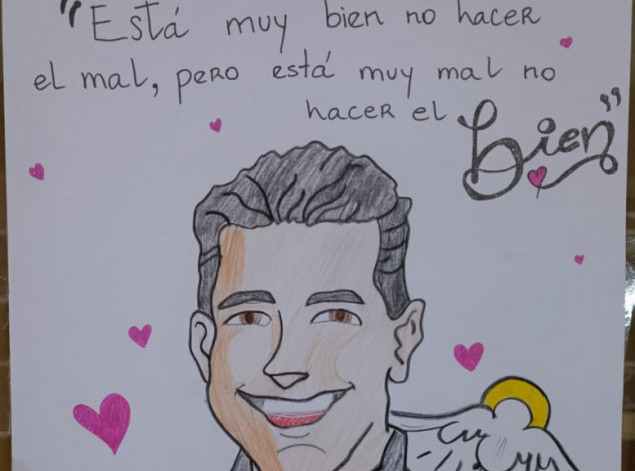 "Está muy bien no hacer
el mal, pero está muy mal no
hacer el bien"